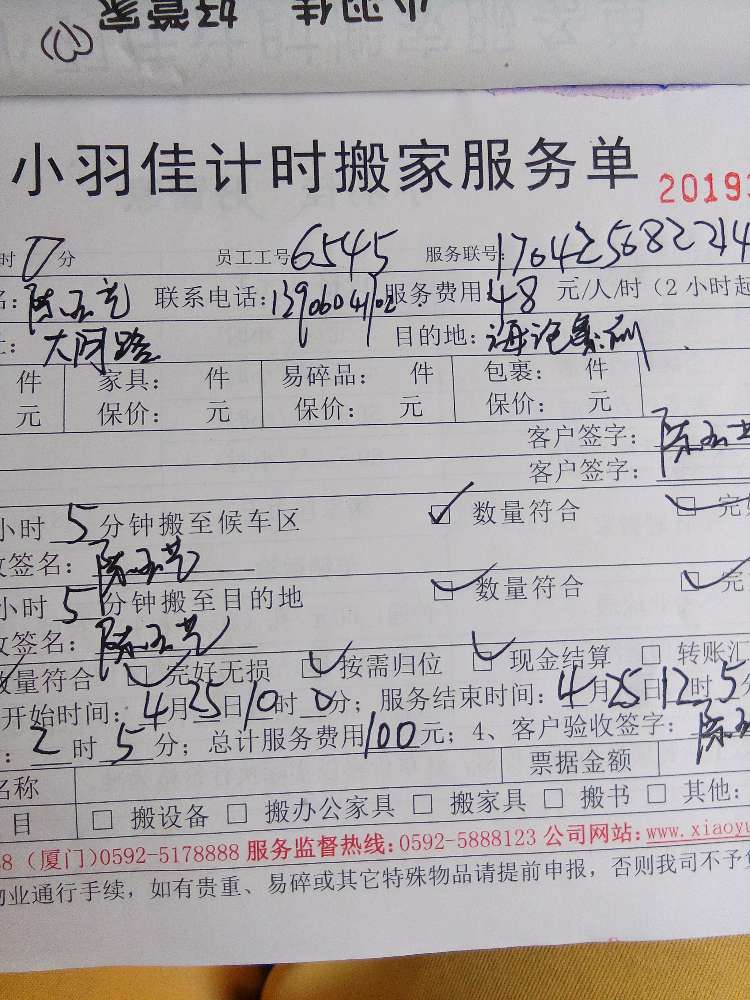 小羽佳 好管家
小羽佳计时搬家服务单 2019
时0分 员工工号6545 服务联号:176425682214
名:陈玉艺 联系电话:13906041102 服务费用:48元/人/时(2小时起
:大同路 目的地:海沧
件 家具: 件 易碎品: 件 包裹: 件
元 保价: 元 保价: 元 保价: 元
客户签字:陈玉艺
客户签字:
小时5分钟搬至候车区 ☑ 数量符合 ☑ 完
收签名:陈玉艺
小时5分钟搬至目的地 ☑ 数量符合 ☑ 完
收签名:陈玉艺
数量符合 ☑ 完好无损 ☑ 按需归位 ☑ 现金结算 □ 转账汇
开始时间:4月25日10时0分;服务结束时间:4月25日12时5分
:2时5分;总计服务费用100元;4、客户验收签字:陈玉
名称 票据金额
目 □ 搬设备 □ 搬办公家具 □ 搬家具 □ 搬书 □ 其他:
88(厦门)0592-5178888 服务监督热线:0592-5888123 公司网站:www.xiaoyu
物业通行手续,如有贵重、易碎或其它特殊物品请提前申报,否则我司不予